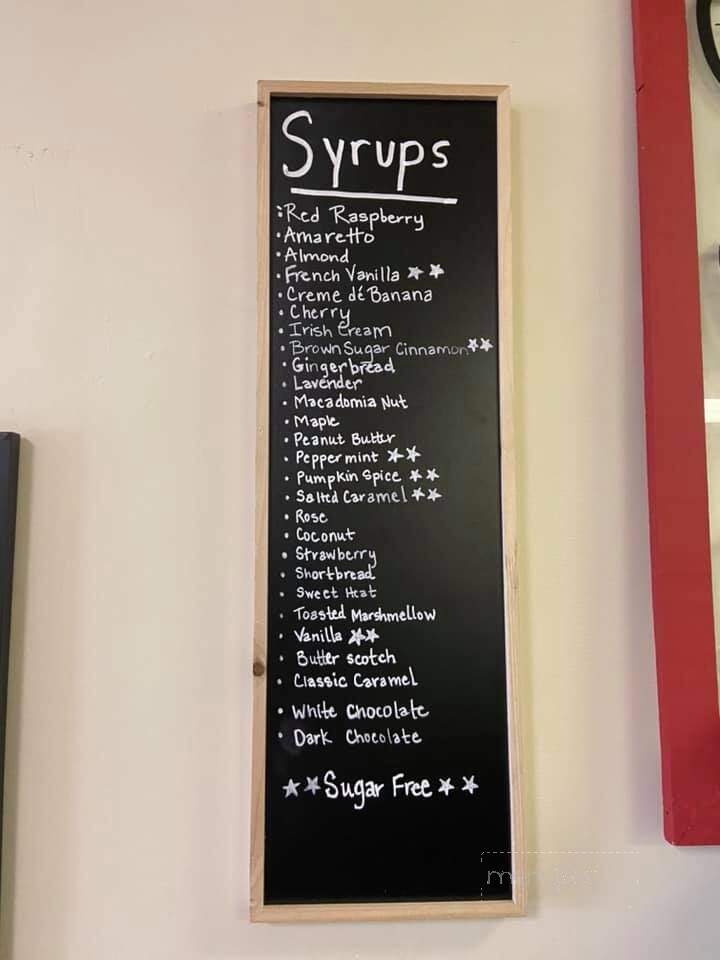 Syrups
• Red Raspberry
• Amaretto
• Almond
• French Vanilla ★★
• Creme dé Banana
• Cherry
• Irish Cream
• Brown Sugar Cinnamon ★★
• Gingerbread
• Lavender
• Macadomia Nut
• Maple
• Peanut Butter
• Peppermint ★★
• Pumpkin Spice ★★
• Salted Caramel ★★
• Rose
• Coconut
• Strawberry
• Shortbread
• Sweet Heat
• Toasted Marshmellow
• Vanilla ★★
• Butter scotch
• Classic Caramel
• White Chocolate
• Dark Chocolate
★★ Sugar Free ★★